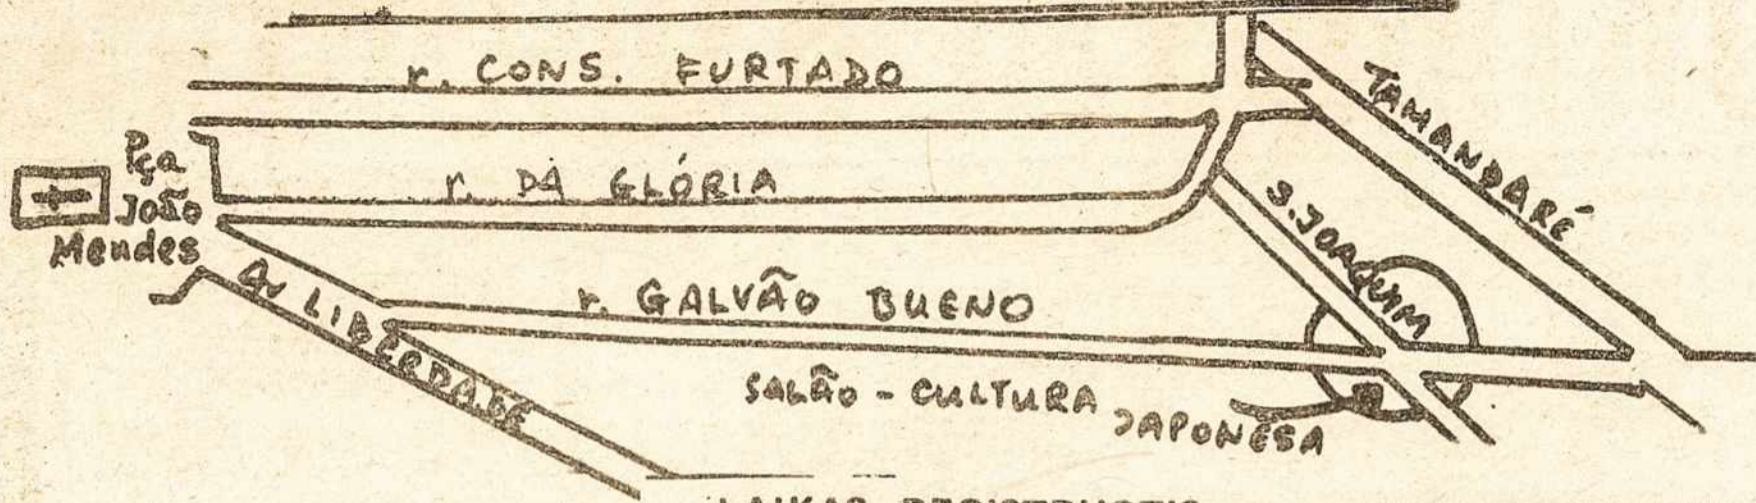 r. CONS. FURTADO
TAMANDARÉ
Pça
João
Mendes
r. DA GLÓRIA
S. JOAQUIM
AV LIBERDADE
r. GALVÃO BUENO
SALÃO - CULTURA
JAPONESA